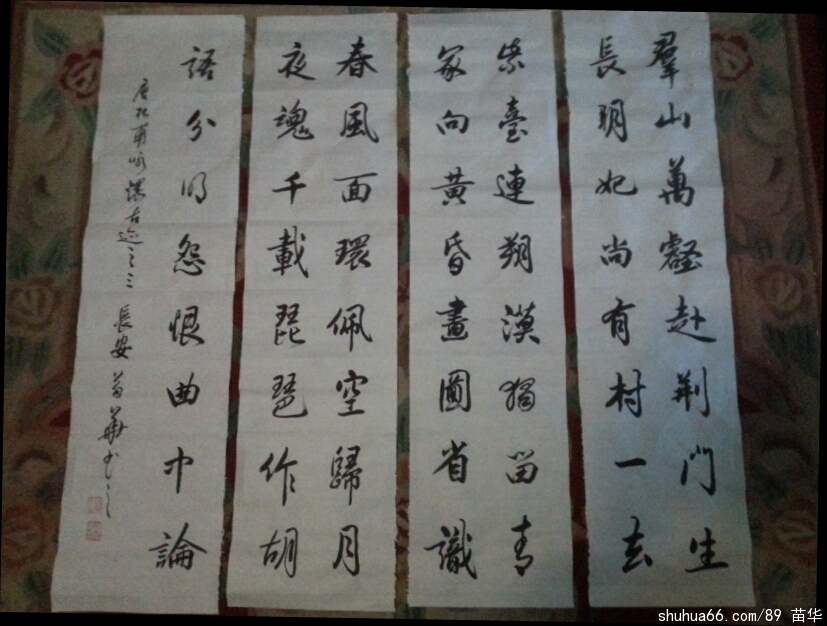 羣山萬壑赴荆門生
長明妃尚有村一去
紫臺連朔漠獨留青
冢向黃昏畫圖省識
春風面環佩空歸月
夜魂千載琵琶作胡
語分明怨恨曲中論
唐杜甫咏懷古迹之三 長安 苗華書之
shuhua66.com/89 苗华